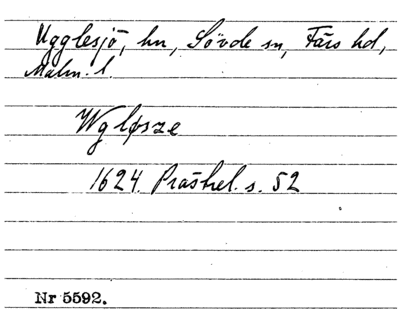 Ugglesjö, hn, Sövde sn, Färs hd,
Malm. l.
Wgløsze
1624. Prästrel. s. 52
Nr 5592.